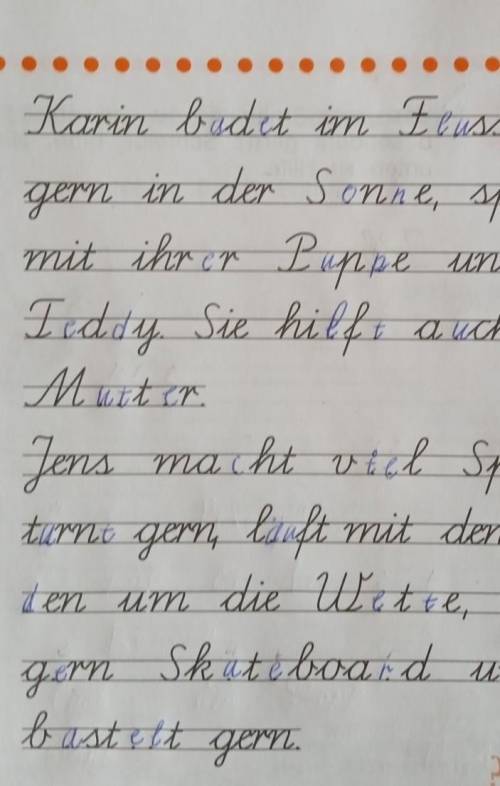 Karin badet im Fluss
gern in der Sonne, sp
mit ihrer Puppe un
Teddy. Sie hilft auch
Mutter.
Jens macht viel Sp
turnt gern, läuft mit den
den um die Wette,
gern Skateboard u
bastelt gern.